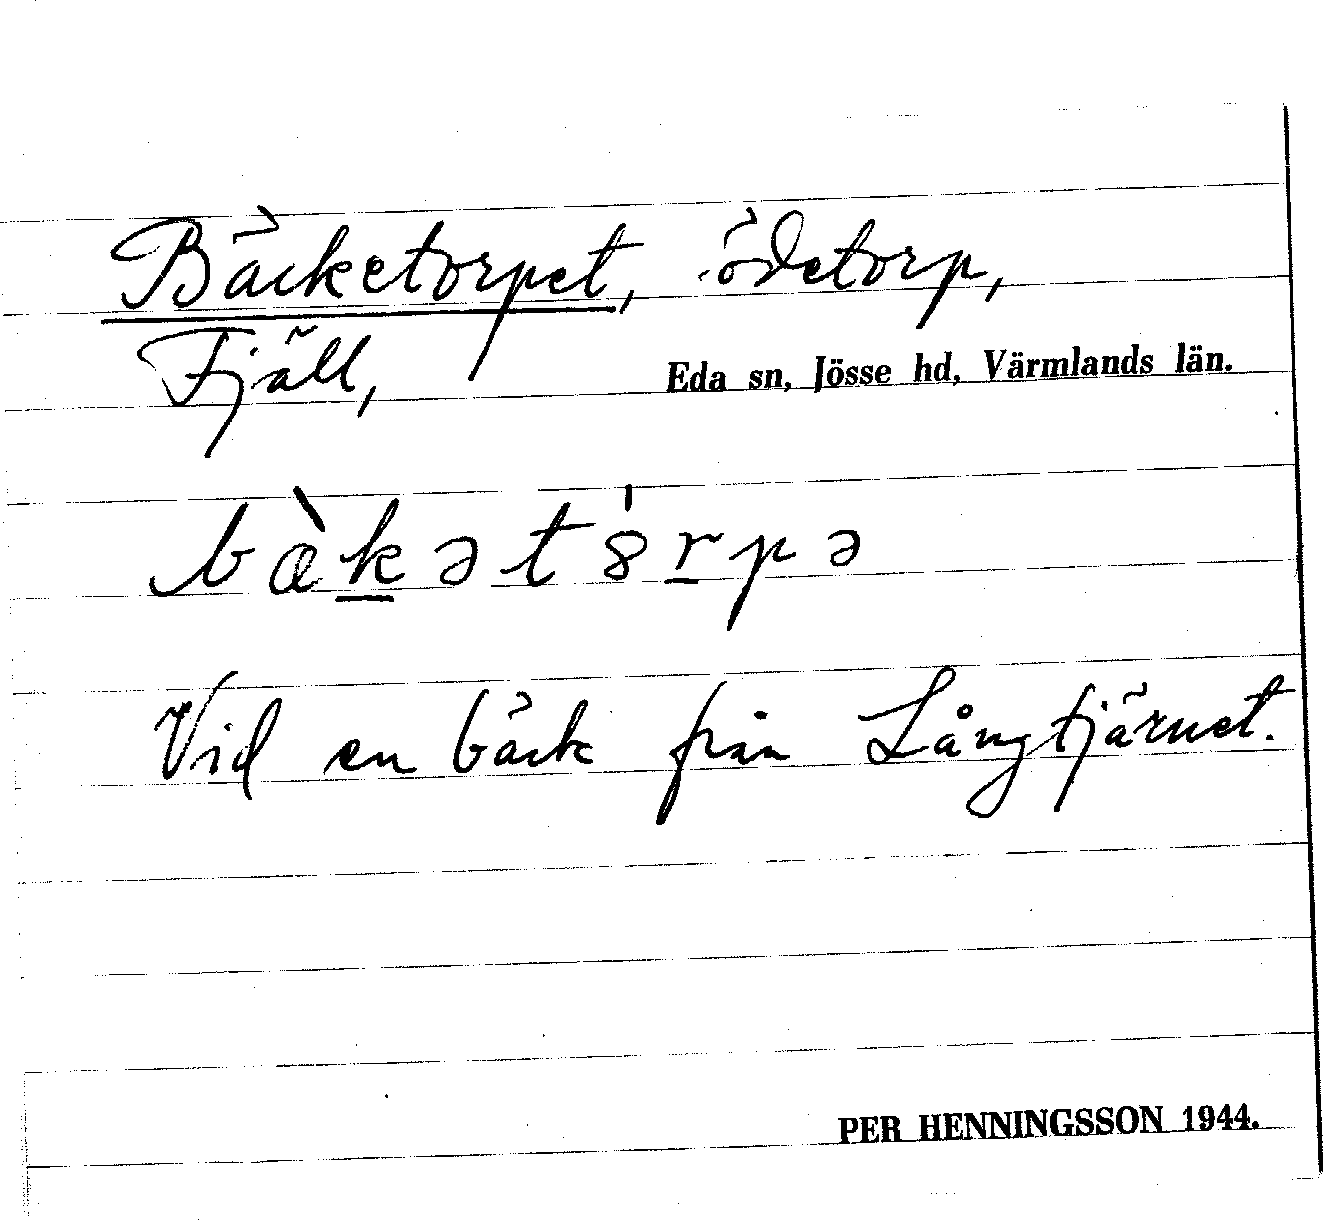 Bäcketorpet, ödetorp,
Fjäll, Eda sn, Jösse hd, Värmlands län.
bæ̀kətȣ́rpə
Vid en bäck från Långtjärnet.
PER HENNINGSSON 1944.